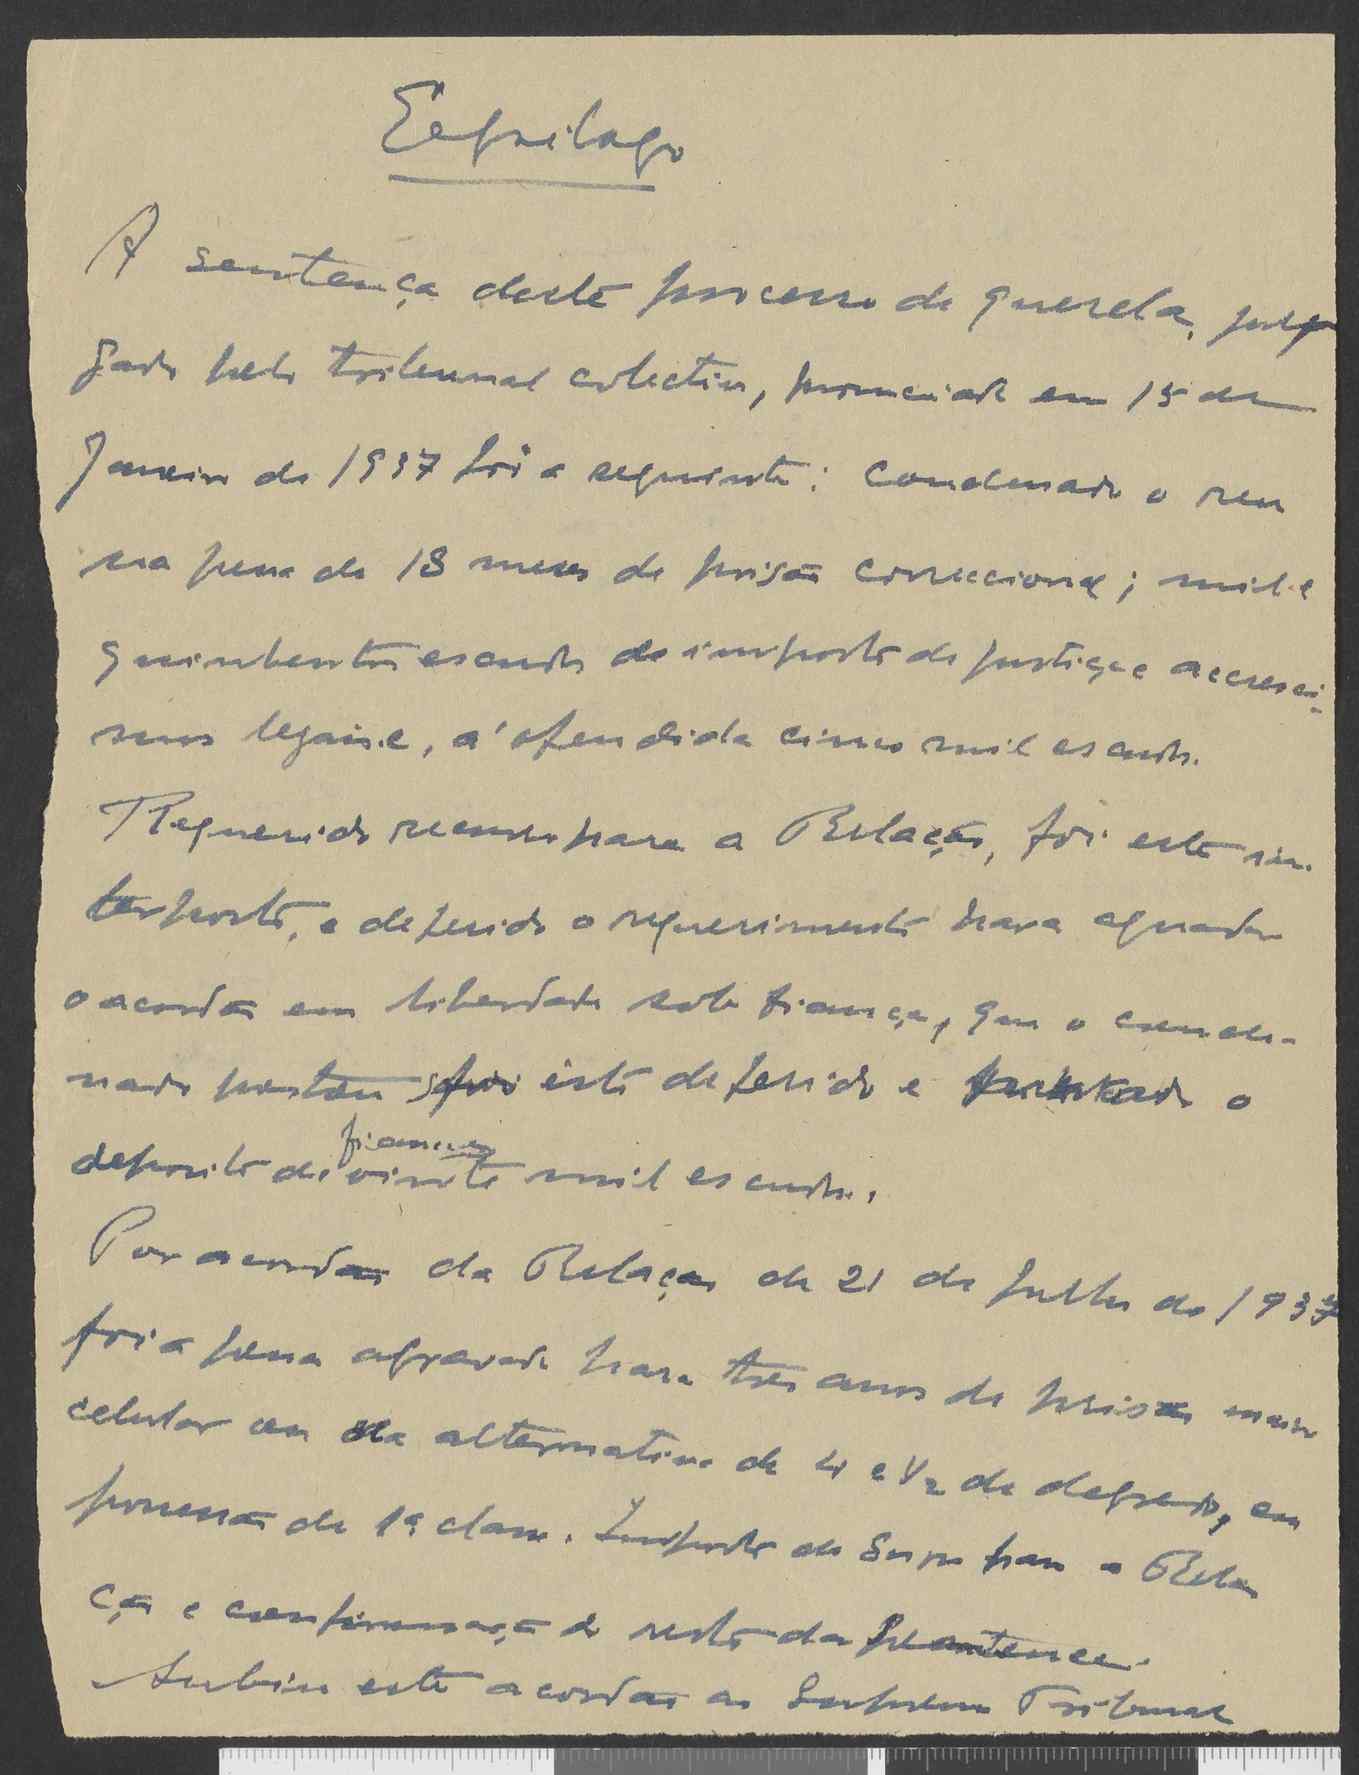 Epilogo
A sentença deste processo de querela, jul-
gado pelo tribunal colectivo, pronunciada em 15 de
Janeiro de 1937 foi a seguinte: condenado o reu
na pena de 18 meses de prisão correccional; mil e
quinhentos escudos de imposto de justiça e acresci-
mos legais e, á ofendida cinco mil escudos.
Requerido recurso para a Relação, foi este in-
terposto, e deferido o requerimento para aguardar
o acordão em liberdade sob fiança, que o conde-
nado prestou este deferido e o
deposito de fiança vinte mil escudos.
Por acordão da Relação de 21 de Julho de 1937
foi a pena agravada para tres anos de prisão maior
celular ou na alternativa de 4 e 1/2 de degredo, em
possessão de 1ª classe. Imposto de para a Rela
ção e confirmação do resto da sentença.
Subiu este acordão ao Supremo Tribunal